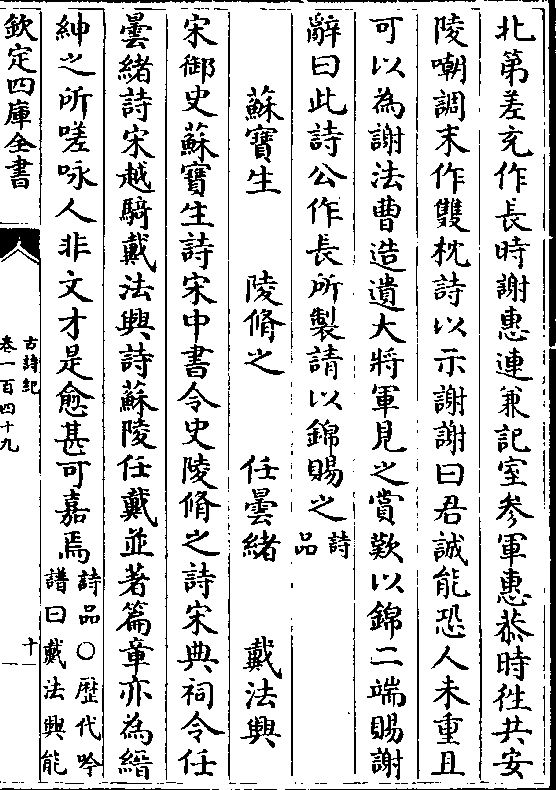 北第差充作長時謝惠連兼記室參軍惠恭時徃共安
陵嘲調末作雙枕詩以示謝謝曰君誠能恐人未重且
可以為謝法曹造遺大將軍見之賞歎以錦二端賜謝
辭曰此詩公作長所製請以錦賜之詩品
蘇寶生　陵脩之　任曇緒　戴法興
宋御史蘇寶生詩宋中書令史陵脩之詩宋典祠令任
曇緒詩宋越騎戴法興詩蘇陵任戴並著篇章亦為縉
紳之所嗟咏人非文才是愈甚可嘉焉詩品○歴代吟譜曰戴法興能
欽定四庫全書
古詩紀
卷一百四十九
十一